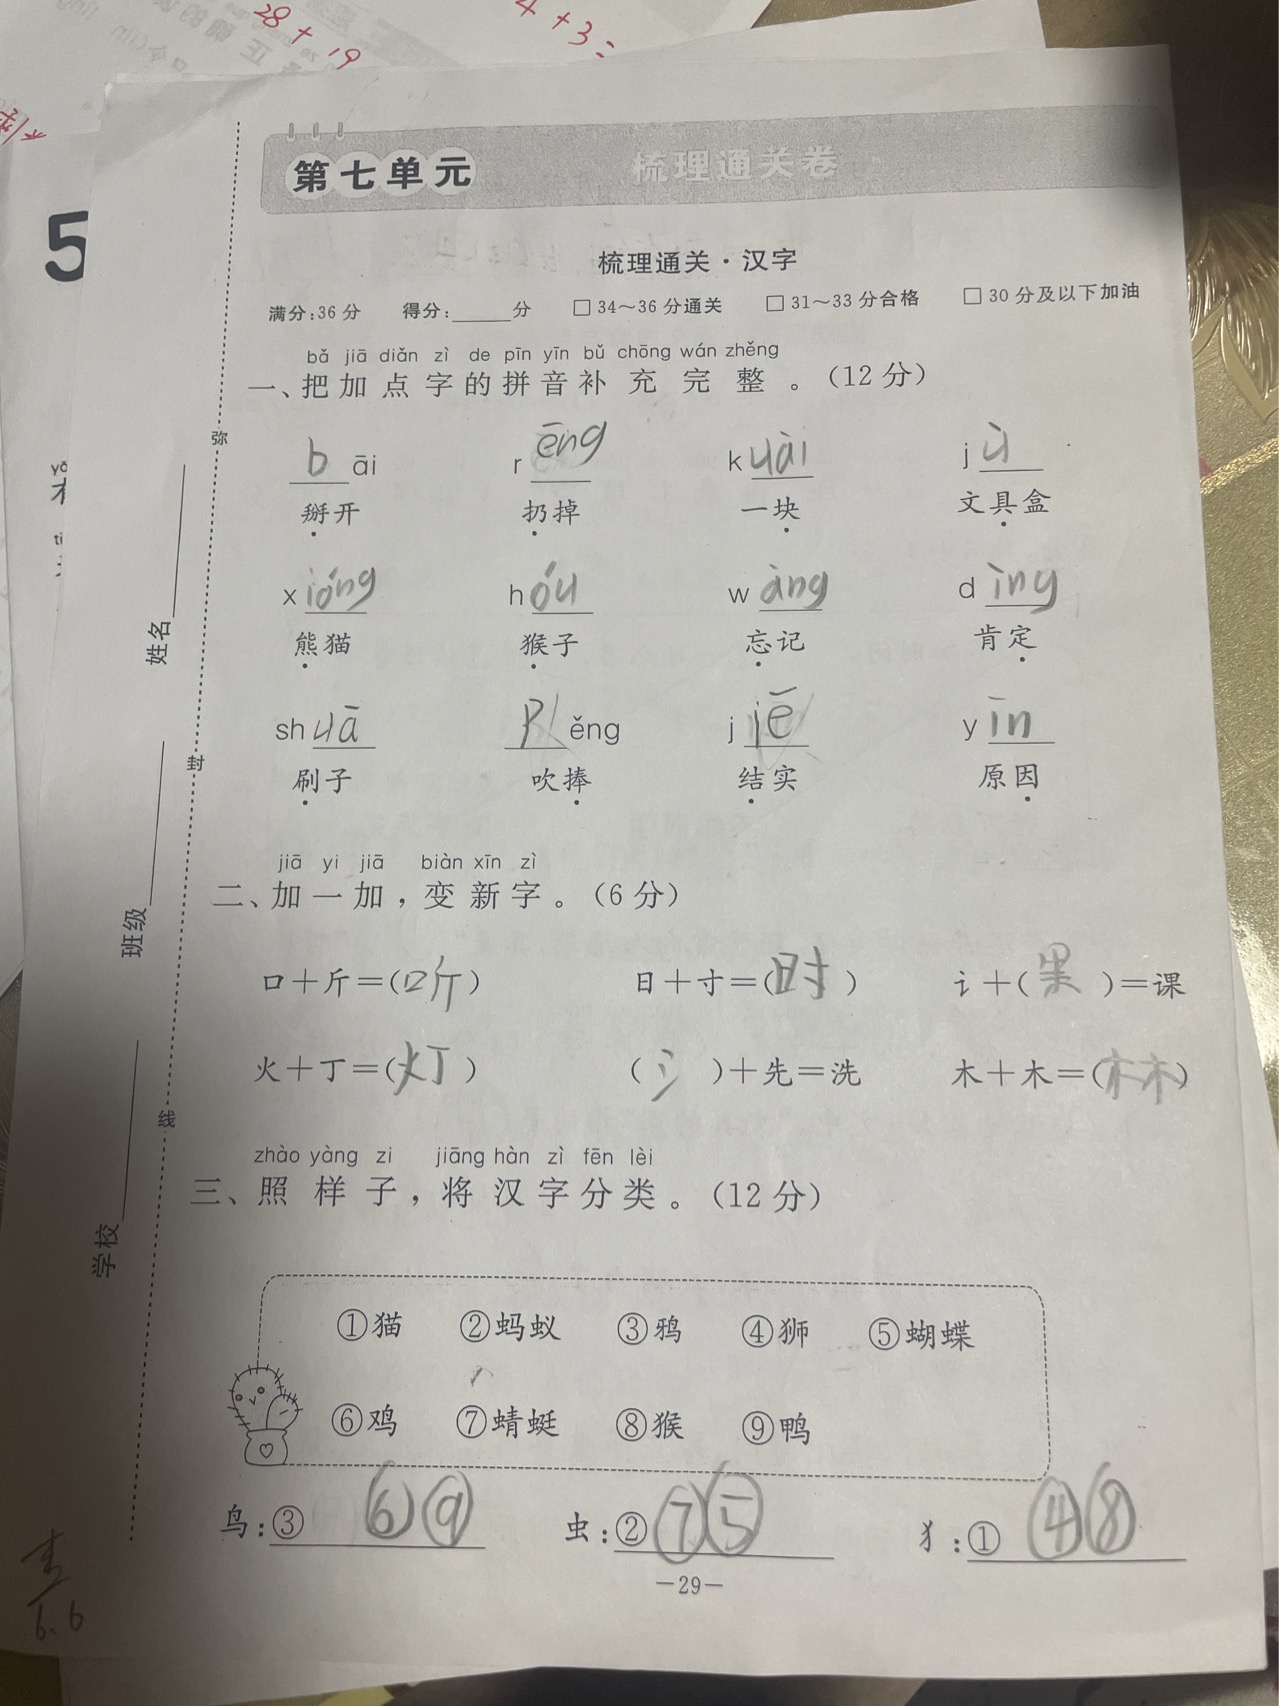 28+19
4+3=
5
第七单元 梳理通关卷
梳理通关·汉字
满分:36分 得分:______分 □34～36分通关 □31～33分合格 □30分及以下加油
bǎ jiā diǎn zì de pīn yīn bǔ chōng wán zhěng
一、把加点字的拼音补充完整。(12分)
b āi r ēng k uài j ù
掰开 扔掉 一块 文具盒
x ióng h óu w àng d ìng
熊猫 猴子 忘记 肯定
sh uā p ěng j iē y īn
刷子 吹捧 结实 原因
jiā yi jiā biàn xīn zì
二、加一加,变新字。(6分)
口+斤=(听) 日+寸=(时) 讠+(果)=课
火+丁=(灯) (氵)+先=洗 木+木=(林)
zhào yàng zi jiāng hàn zì fēn lèi
三、照样子,将汉字分类。(12分)
①猫 ②蚂蚁 ③鸦 ④狮 ⑤蝴蝶
⑥鸡 ⑦蜻蜓 ⑧猴 ⑨鸭
鸟:③ ⑥⑨ 虫:②⑦⑤ 犭:① ④⑧
—29—
学校 班级 姓名
弥 封 线
6.6